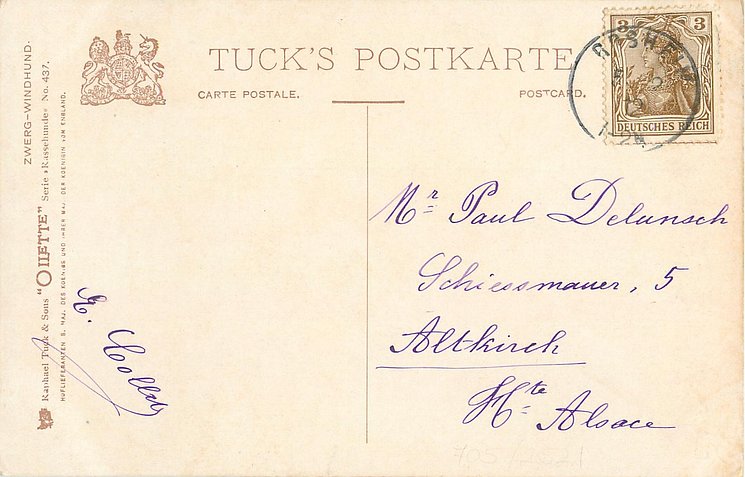 ZWERG-WINDHUND.
Raphael Tuck & Sons "OILETTE" Serie »Rassehunde« No. 437.
HOFLIEFERANTEN S. MAJ. DES KOENIGS UND IHRER MAJ. DER KOENIGIN VOM ENGLAND.
TUCK'S POSTKARTE
CARTE POSTALE.
POSTCARD.
3 3
DEUTSCHES REICH
ROSHEIM
Mr Paul Delunsch
Schiessmauer, 5
Altkirch
Hte Alsace